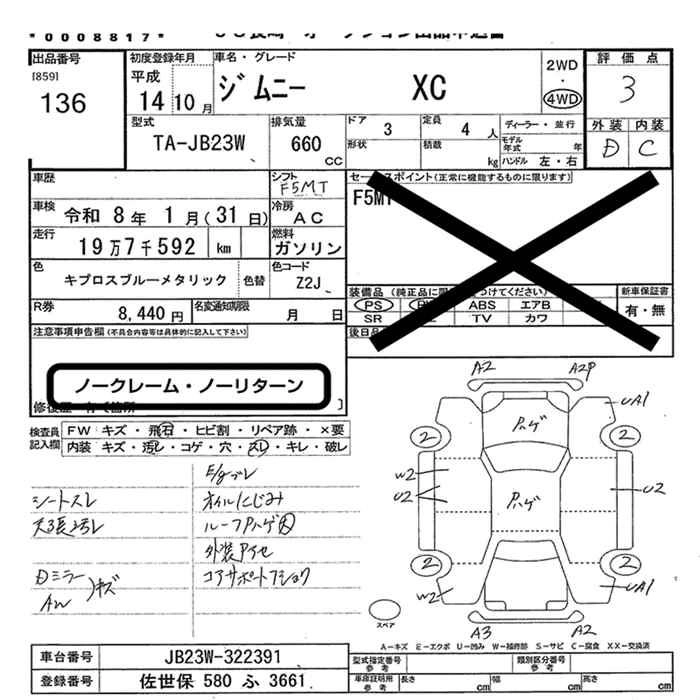 *0008817*
出品番号
[859]
136
初度登録年月
平成
14年10月
車名・グレード
ジムニー XC
2WD
・
4WD
評価点
3
外装 内装
D C
型式
TA-JB23W
排気量
660
CC
ドア 3
定員 4人
形状
積載 kg
ディーラー・並行
モデル年式 年
ハンドル 左・右
車歴
シフト
F5MT
車検 令和 8年 1月(31日)
冷房
AC
走行 19万7千592 km
燃料
ガソリン
色
キプロスブルーメタリック
色替
色コード
Z2J
R券 8,440円
名変通知期限 月 日
セールスポイント(正常に機能するものに限ります)
F5MT
装備品
PS ABS エアB
SR TV カワ
新車保証書
有・無
後日品
注意事項申告欄(不具合内容等は具体的に記入して下さい)
ノークレーム・ノーリターン
検査員記入欄
FW キズ・飛石・ヒビ割・リペア跡・×要
内装 キズ・汚レ・コゲ・穴・スレ・キレ・破レ
シートスレ
Dミラー
AW
キズ
E/gブレ
オイルにじみ
ルーフPハゲ大
外装
コアサポート
A2 A2P
UA1
2 2
Pハゲ
W2
U2
Pハゲ
U2
2 2
W2
UA1
A3 A2
スペア
A－キズ E－エクボ U－凹み W－補修跡 S－サビ C－腐食 XX－交換済
車台番号 JB23W-322391
登録番号 佐世保 580 ふ 3661
型式指定番号 参考
類別区分番号 参考
車庫証明用 参考
長さ cm
幅 cm
高さ cm